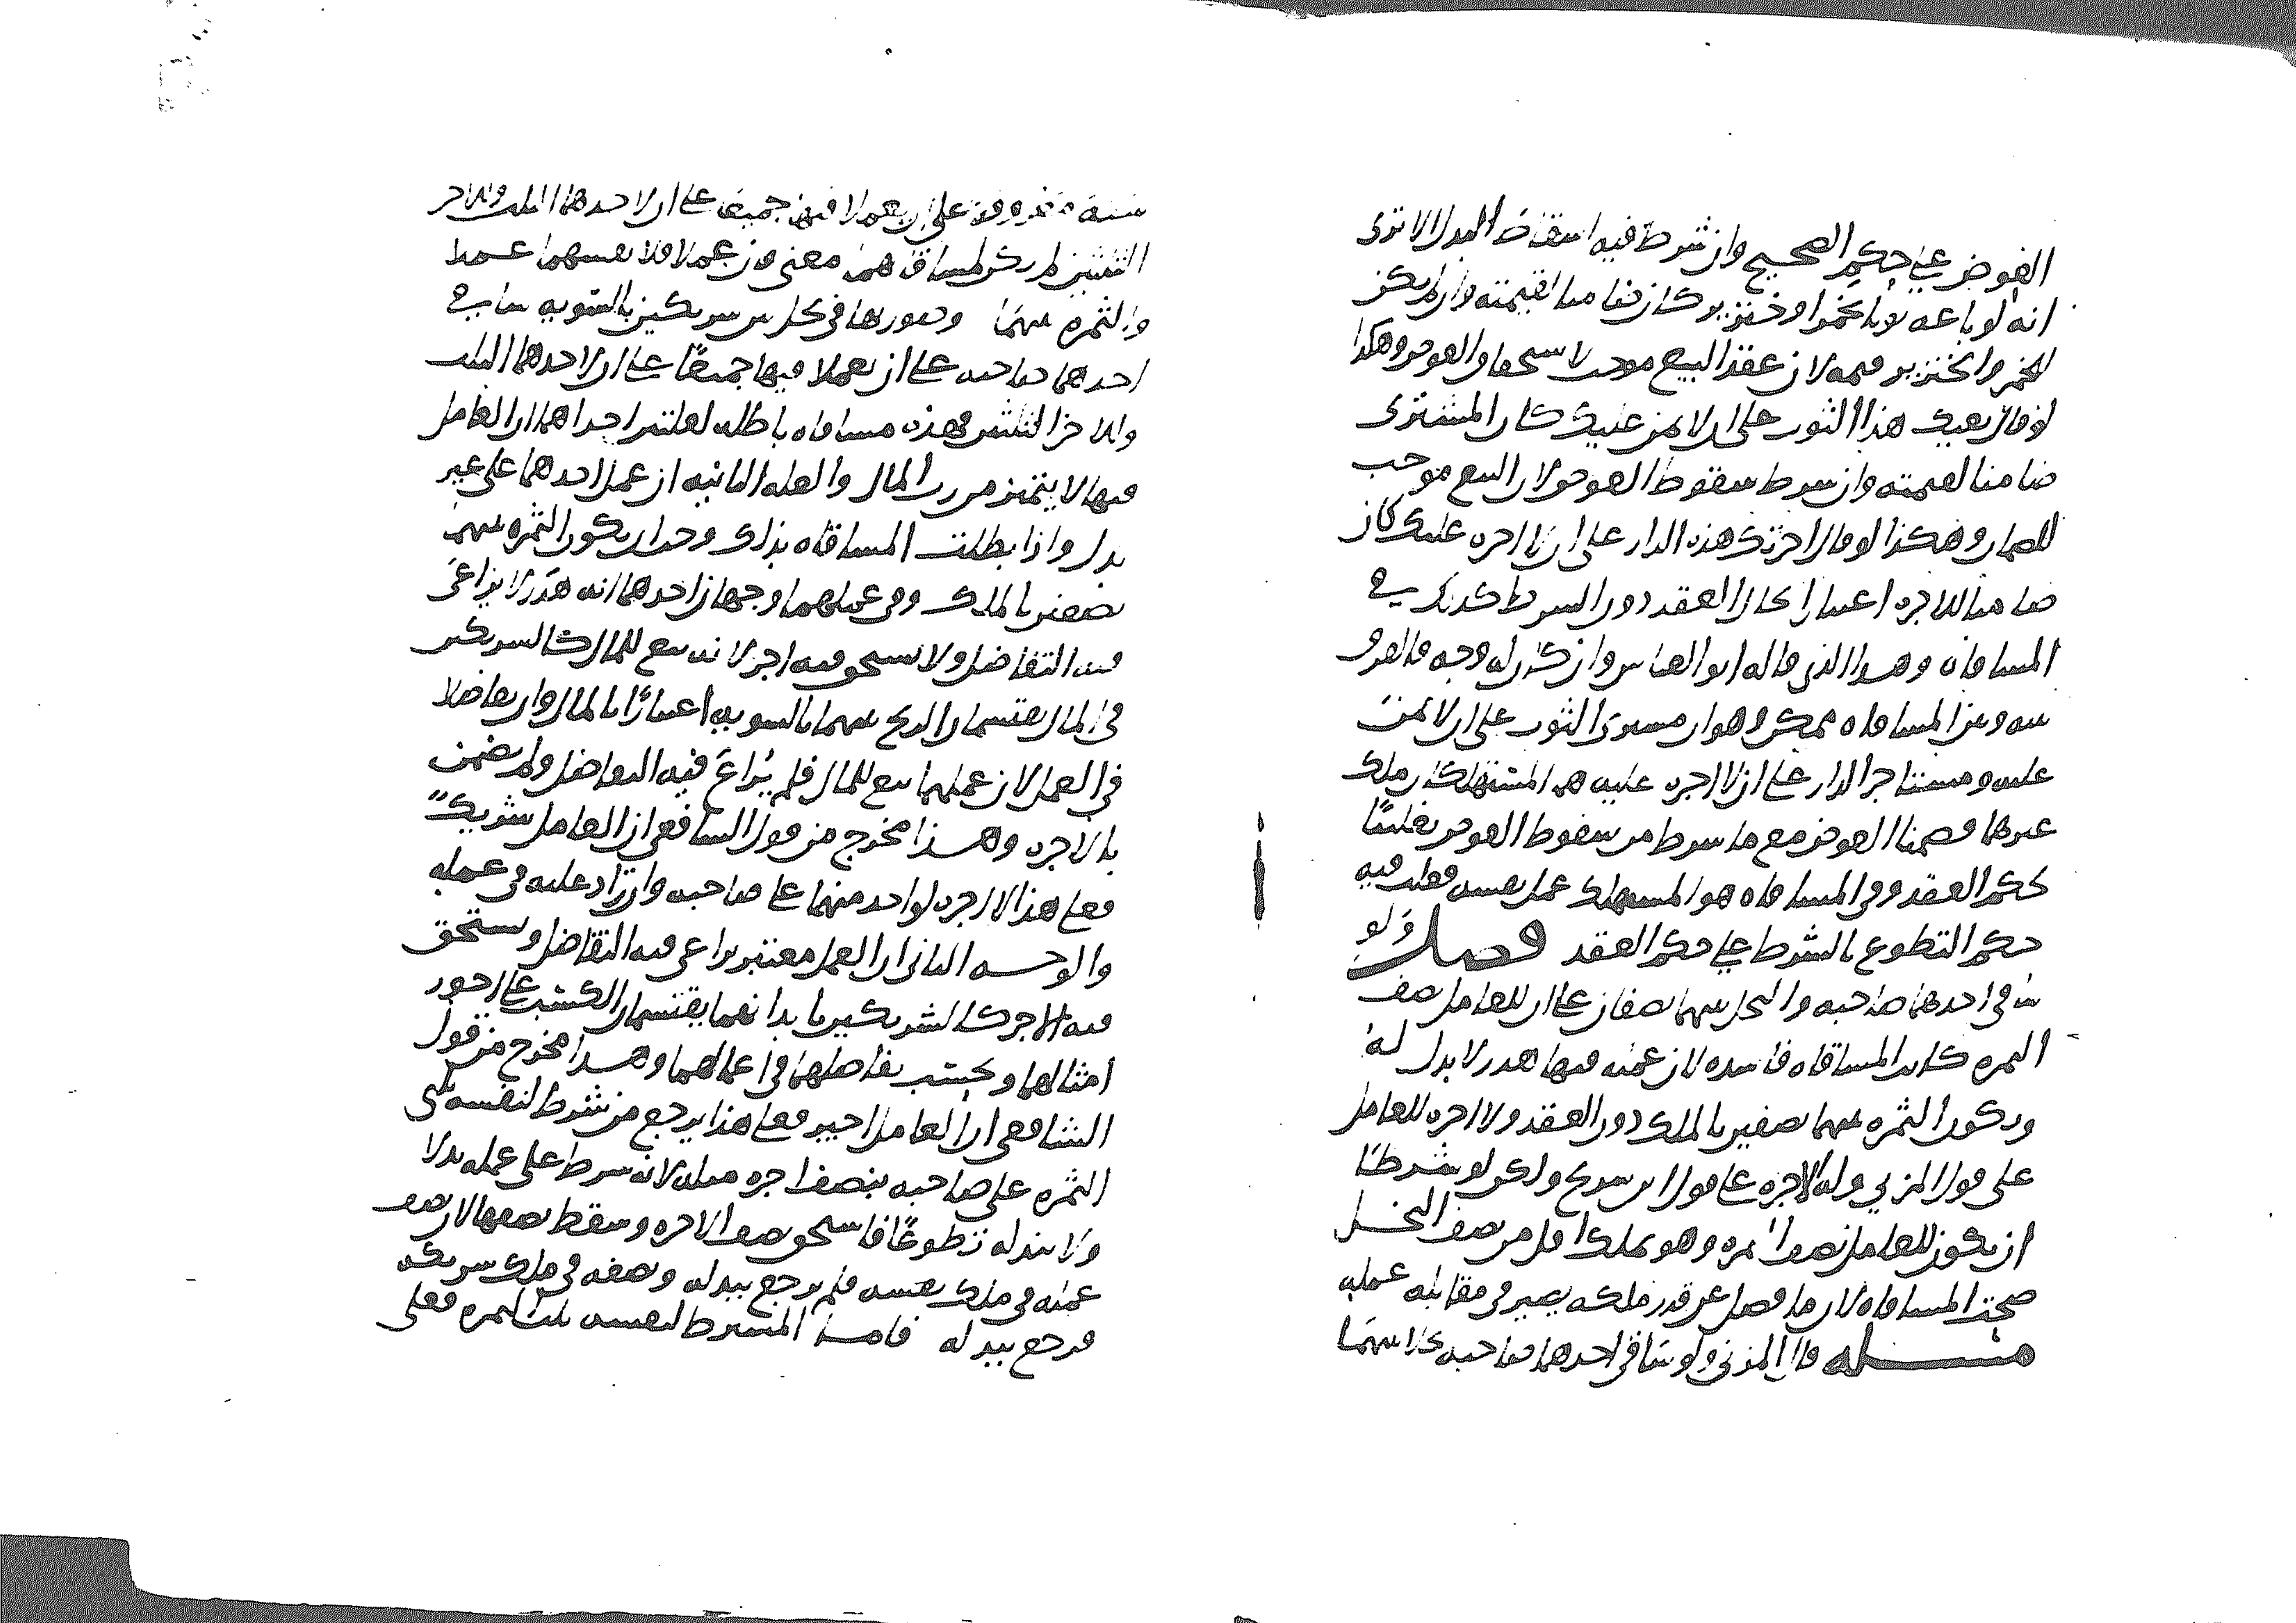 العوض على حكم الصحيح وان شرط فيه اسقاط البدل الا ترى
انه لو باعه ثوبا بخمر او خنزير كان ضامنا لقيمته وان لم يكن
للخمر والخنزير قيمه لان عقد البيع موجب لاستحقاق العوض وهكذا
لو قال بعتك هذا الثوب على ان لا ثمن عليك كان المشترى
ضامنا لقيمته وان شرط سقوط العوض لان البيع موجب
للضمان وهكذا لو قال اجرتك هذه الدار على ان لا اجره عليك كان
ضامنا للاجره اعتبارا بحال العقد دون الشرط كذلك في
المساقاه وهذا الذى قاله ابو العباس وان كان له وجه فالفرق
بينه وبين المساقاه ممكن وهو ان مشترى الثوب على ان لا ثمن
عليه ومستاجر الدار على ان لا اجره عليه هما المستهلكان ملك
غيرهما فضمنا العوض مع ما شرط من سقوط العوض تغليبًا
لحكم العقد وفى المساقاه هو المستهلك عمل نفسه فغلب فيه
حكم التطوع بالشرط على حكم العقد فصل ولو
ساقى احدهما صاحبه والنخل بينهما نصفان على ان للعامل نصف
الثمره كانت المساقاه فاسده لان عمله فيها هدر لا بدل له
وتكون الثمره بينهما نصفين بالملك دون العقد ولا اجره للعامل
على قول المزني وله الاجره على قول ابن سريج ولكن لو شرطا
ان يكون للعامل نصف الثمره وهو يملك اقل من نصف النخل
صحت المساقاه لان ما فضل عن قدر ملكه يصير فى مقابلة عمله
مسله قال المزنى ولو ساقى احدهما صاحبه نخلا بينهما
سنة معروفة على ان يعملا فيها جميعا على ان لاحدهما الثلث وللاخر
الثلثين لم يكن لمساقاتهما معنى فان عملا فلانفسهما عملا
والثمره بينهما وصورتها فى نخل بين شريكين بالسويه ساقى
احدهما صاحبه على ان يعملا فيها جميعًا على ان لاحدهما الثلث
وللاخر الثلثين فهذه مساقاه باطله لعلتين احداهما ان العامل
فيها لا يتميز من رب المال والعله الثانيه ان عمل احدهما على غير
بدل واذا بطلت المساقاه بذلك وجب ان يكون الثمره بينهما
نصفين بالملك وفى عملهما وجهان احدهما انه هدر لا يراعى
فيه التفاضل ولا يستحق فيه اجر لانه تبع للمال كالشريكين
فى المال يقتسمان الربح بينهما بالسويه اعتبارًا بالمال وان تفاضلا
في العمل لان عملهما تبع للمال فلم يُراعَ فيه التفاضل ولم يضمن
بالاجره وهذا مخرج من قول الشافعى ان العامل شريك
فعلى هذا لا اجره لواحد منهما على صاحبه وان زاد عليه فى عمله
والوجه الثانى ان العمل معتبر يراعى فيه التفاضل ويستحق
فيه الاجر كالشريكين بابدانهما يقتسمان الكسب على اجور
امثالهما ويحتسب تفاضلهما فى اعمالهما وهذا مخرج من قول
الشافعى ان العامل اجير فعلى هذا يرجع من شرط لنفسه ثلثى
الثمره على صاحبه بنصف اجره مثله لانه شرط على عمله بدلا
ولا يبذله تطوعًا فاستحق نصف الاجره وسقط نصفها لان نصف
عمله فى ملك نفسه فلم يرجع ببدله ونصفه فى ملك شريكه
فرجع ببدله فاما المشترط لنفسه ثلث الثمره فعلى